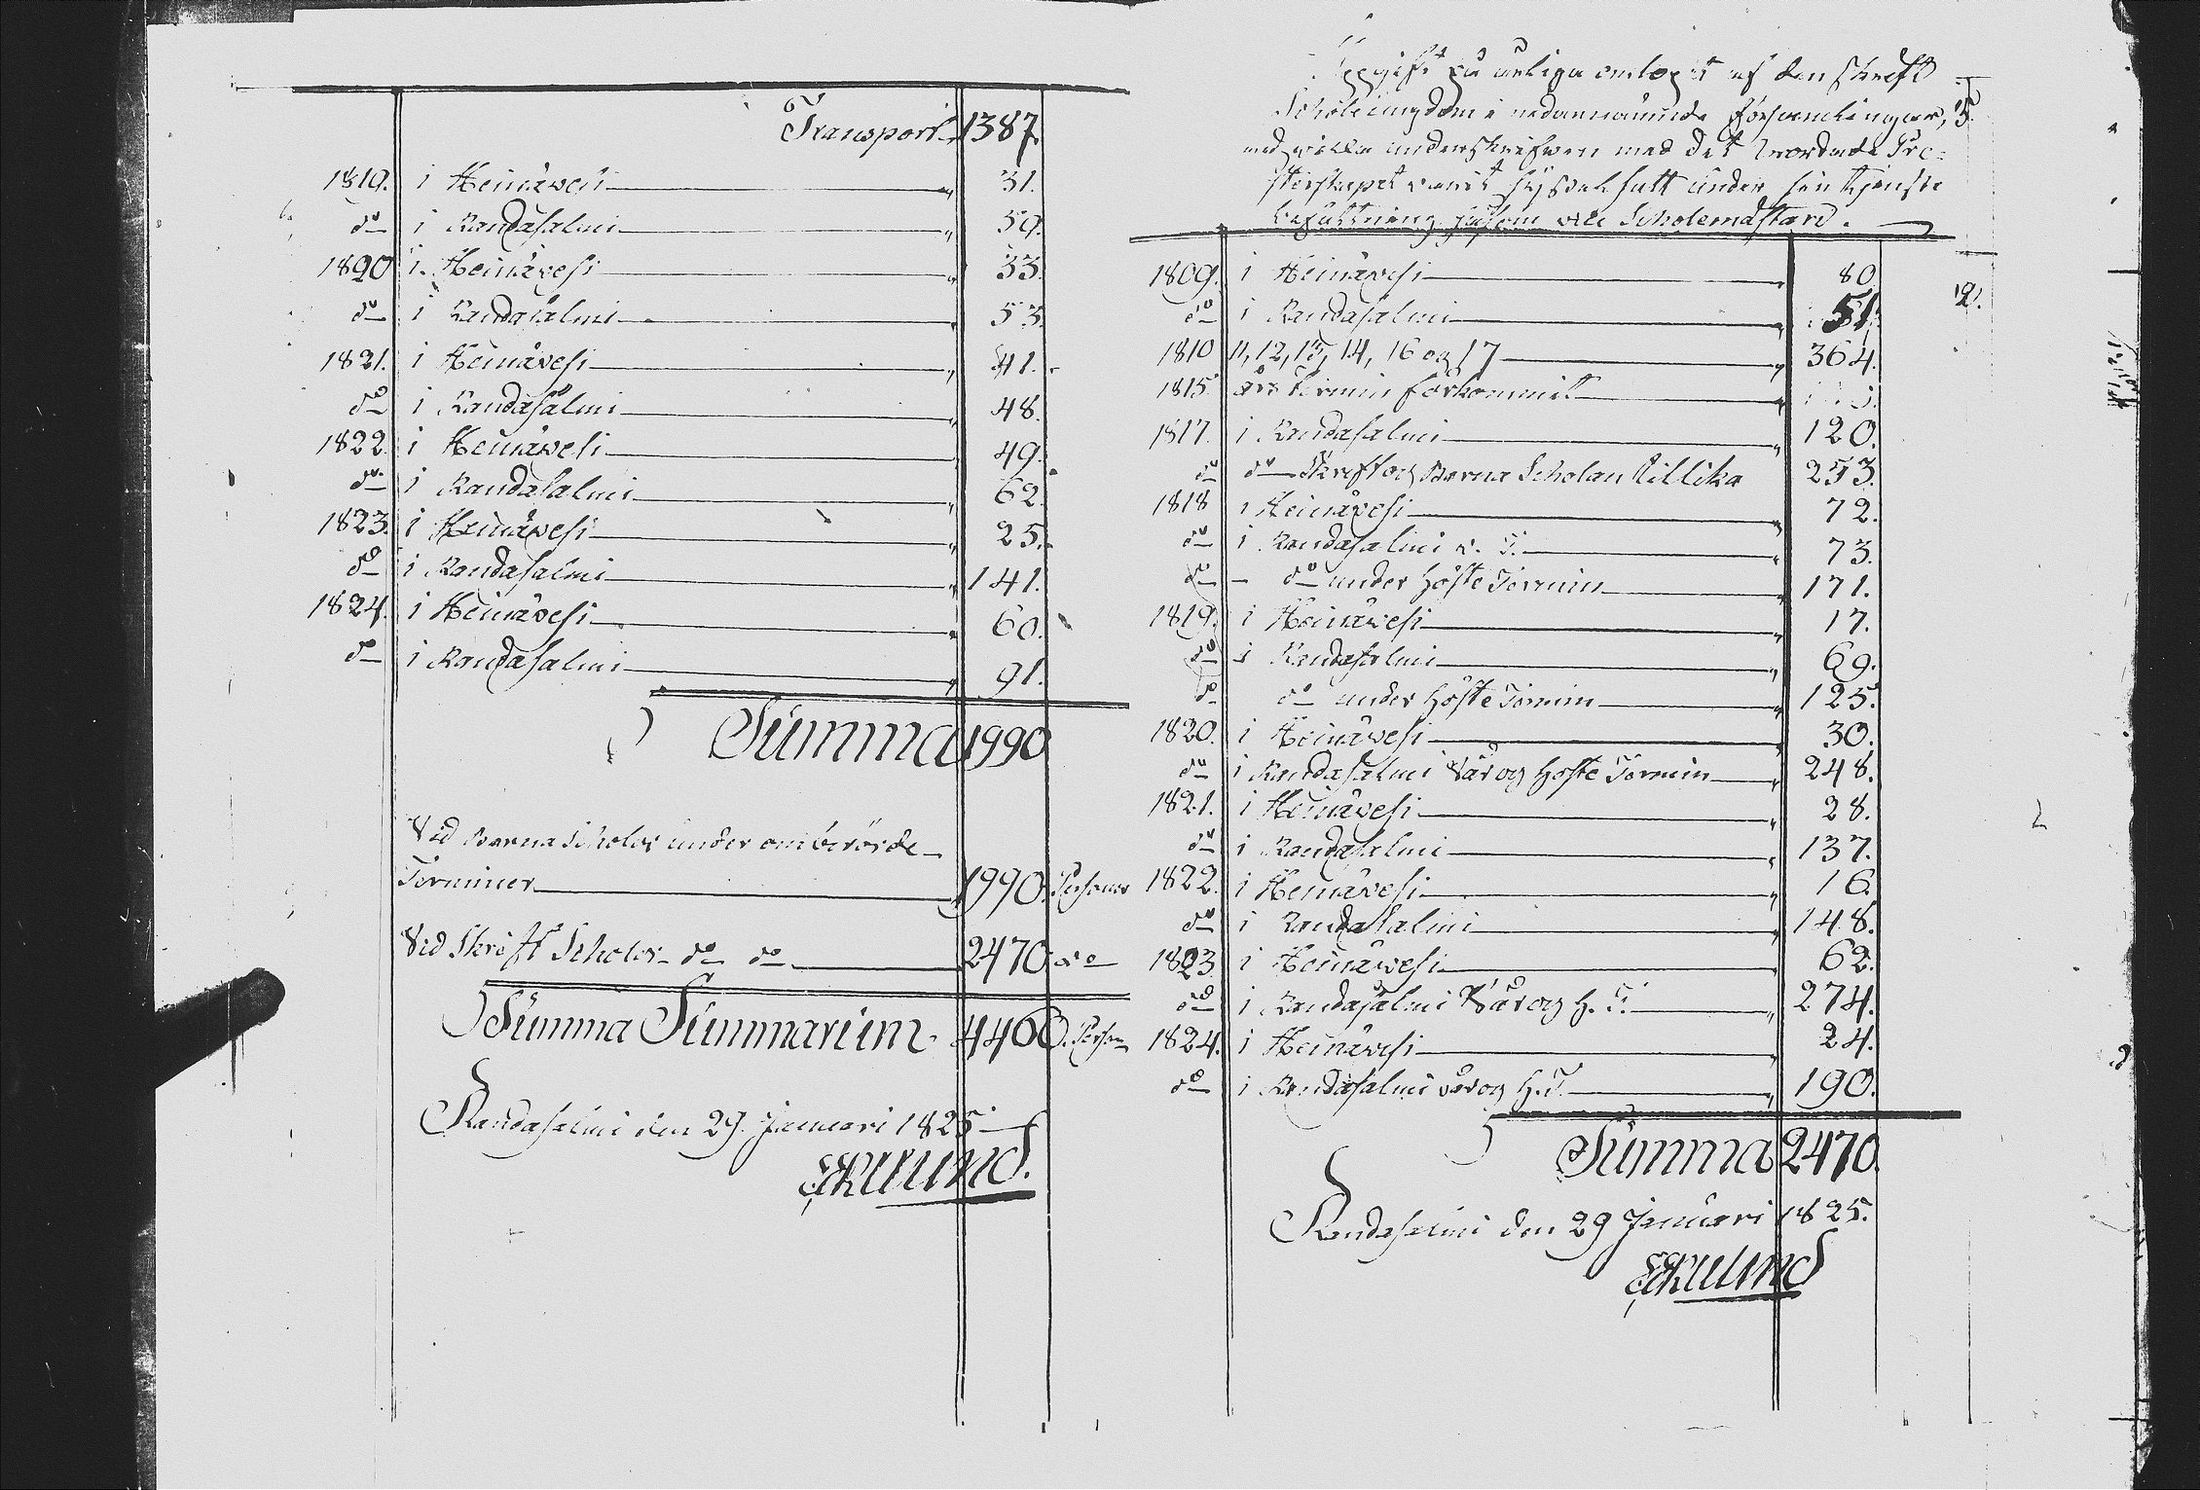 Transport 1387
1819. i Heinävesi „ 31.
do i Randasalmi „ 59.
1820 i Heinävesi „ 33.
do i Randasalmi „ 53.
1821. i Heinävesi „ 41.
do i Randasalmi „ 48.
1822. i Heinävesi „ 49.
do i Randasalmi „ 62.
1823. i Heinävesi „ 25.
do i Randasalmi „ 141.
1824. i Heinävesi „ 60.
do i Randasalmi „ 91.
Summa 1990
Vid Barna Scholor under omberörde
Terminer 1990. Personer
Vid Skrift Scholor do do 2470 do
Summa Summarum 4460. Person
Randasalmi den 29. Januari 1825
Eklund.
Uppgift på årliga antaget af den skrift
Schole ungdom i nedannämnde församlingar,
med underskrifwen med det wördade Pre-
sterskapet warit sysselsatt under sin tjenste
befattning såsom vice Scholemästare.
1809. i Heinävesi „ 80
do i Randasalmi „ 51.
1810 11, 12, 13, 14, 16 og 17 „ 364.
1815 års Termin förkommit „
1817. i Randasalmi „ 120.
do do Skrift og Barna Scholan tillika 253.
1818 i Heinävesi „ 72.
do i Randasalmi v. T. „ 73.
do - do under höste Termin „ 171.
1819. i Heinävesi „ 17.
do i Randasalmi „ 69.
do do under höste Termin „ 125.
1820. i Heinävesi „ 30.
do i Randasalmi Vår og höste Termin „ 248.
1821. i Heinävesi „ 28.
do i Randasalmi „ 137.
1822. i Heinävesi „ 16.
do i Randasalmi „ 148.
1823 i Heinävesi „ 62.
do i Randasalmi Vår og H. T. „ 274.
1824. i Heinävesi „ 24.
do i Randasalmi vår og H. T. „ 190.
Summa 2470.
Randasalmi den 29 Januari 1825.
Eklund